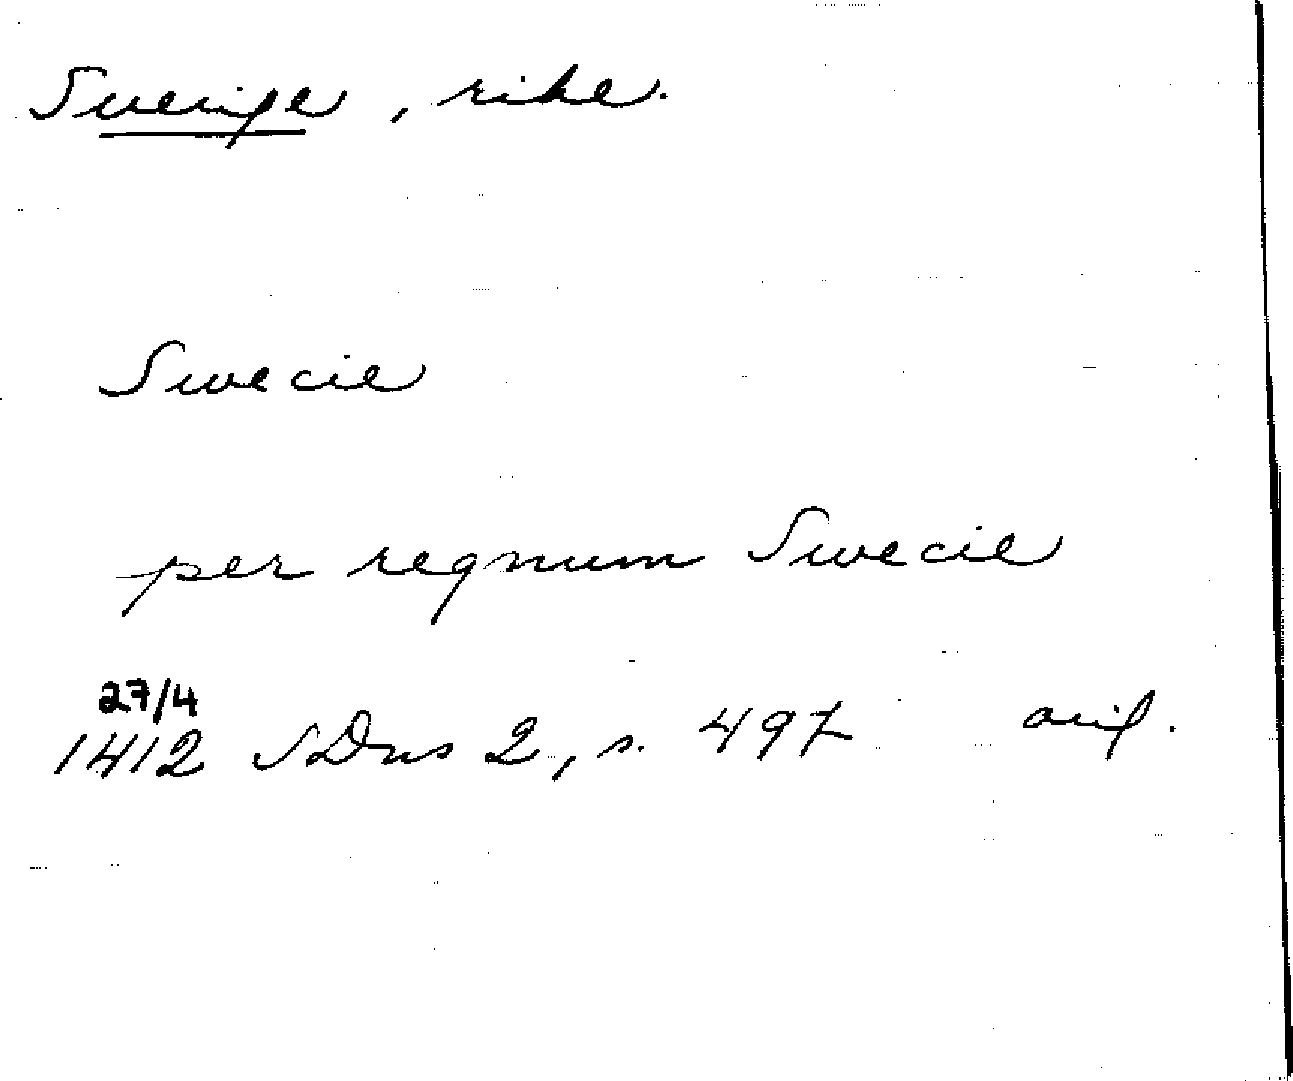 Sverige, rike.
Swecie
per regnum Swecie
27/4
1412 SDns 2, s. 497 orig.